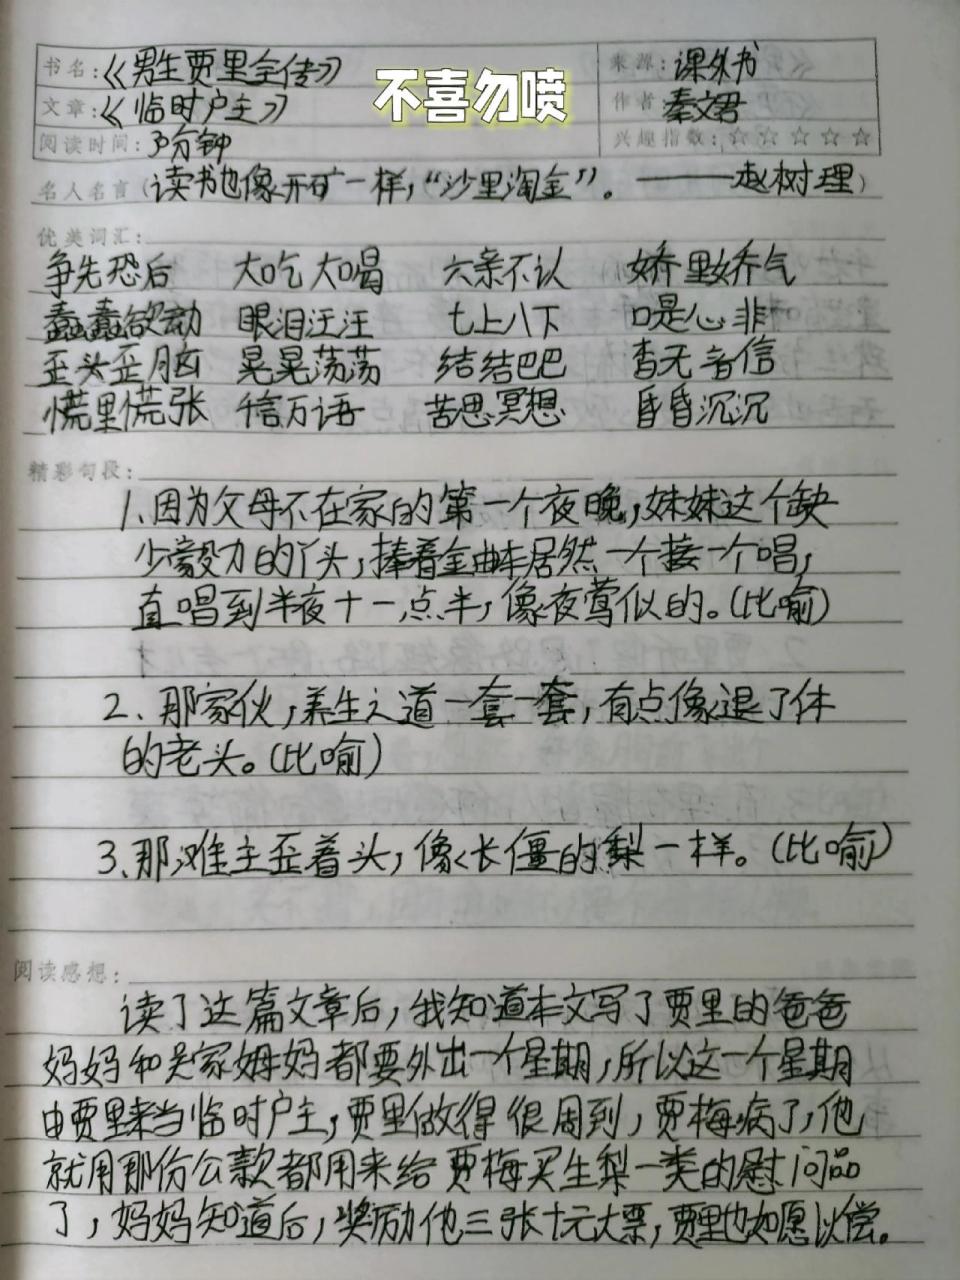 书名:《男生贾里全传》 来源:课外书
不喜勿喷
文章:《临时户主》 作者 秦文君
阅读时间:30分钟 兴趣指数:☆☆☆☆☆
名人名言(读书也像开矿一样,“沙里淘金”。——赵树理)
优美词汇:
争先恐后 大吃大喝 六亲不认 娇里娇气
蠢蠢欲动 眼泪汪汪 七上八下 口是心非
歪头歪脑 晃晃荡荡 结结巴巴 杳无音信
慌里慌张 千言万语 苦思冥想 昏昏沉沉
精彩句段:
1、因为父母不在家的第一个夜晚,妹妹这个缺
少毅力的丫头,捧着金曲本居然一个接一个唱,
直唱到半夜十一点半,像夜莺似的。(比喻)
2、那家伙,养生之道一套一套,有点像退了休
的老头。(比喻)
3、那难主歪着头,像长僵的梨一样。(比喻)
阅读感想:
读了这篇文章后,我知道本文写了贾里的爸爸
妈妈和吴家姆妈都要外出一个星期,所以这一个星期
由贾里来当临时户主,贾里做得很周到,贾梅病了,他
就用那份公款都用来给贾梅买生梨一类的慰问品
了,妈妈知道后,奖励他三张十元大票,贾里也如愿以偿。